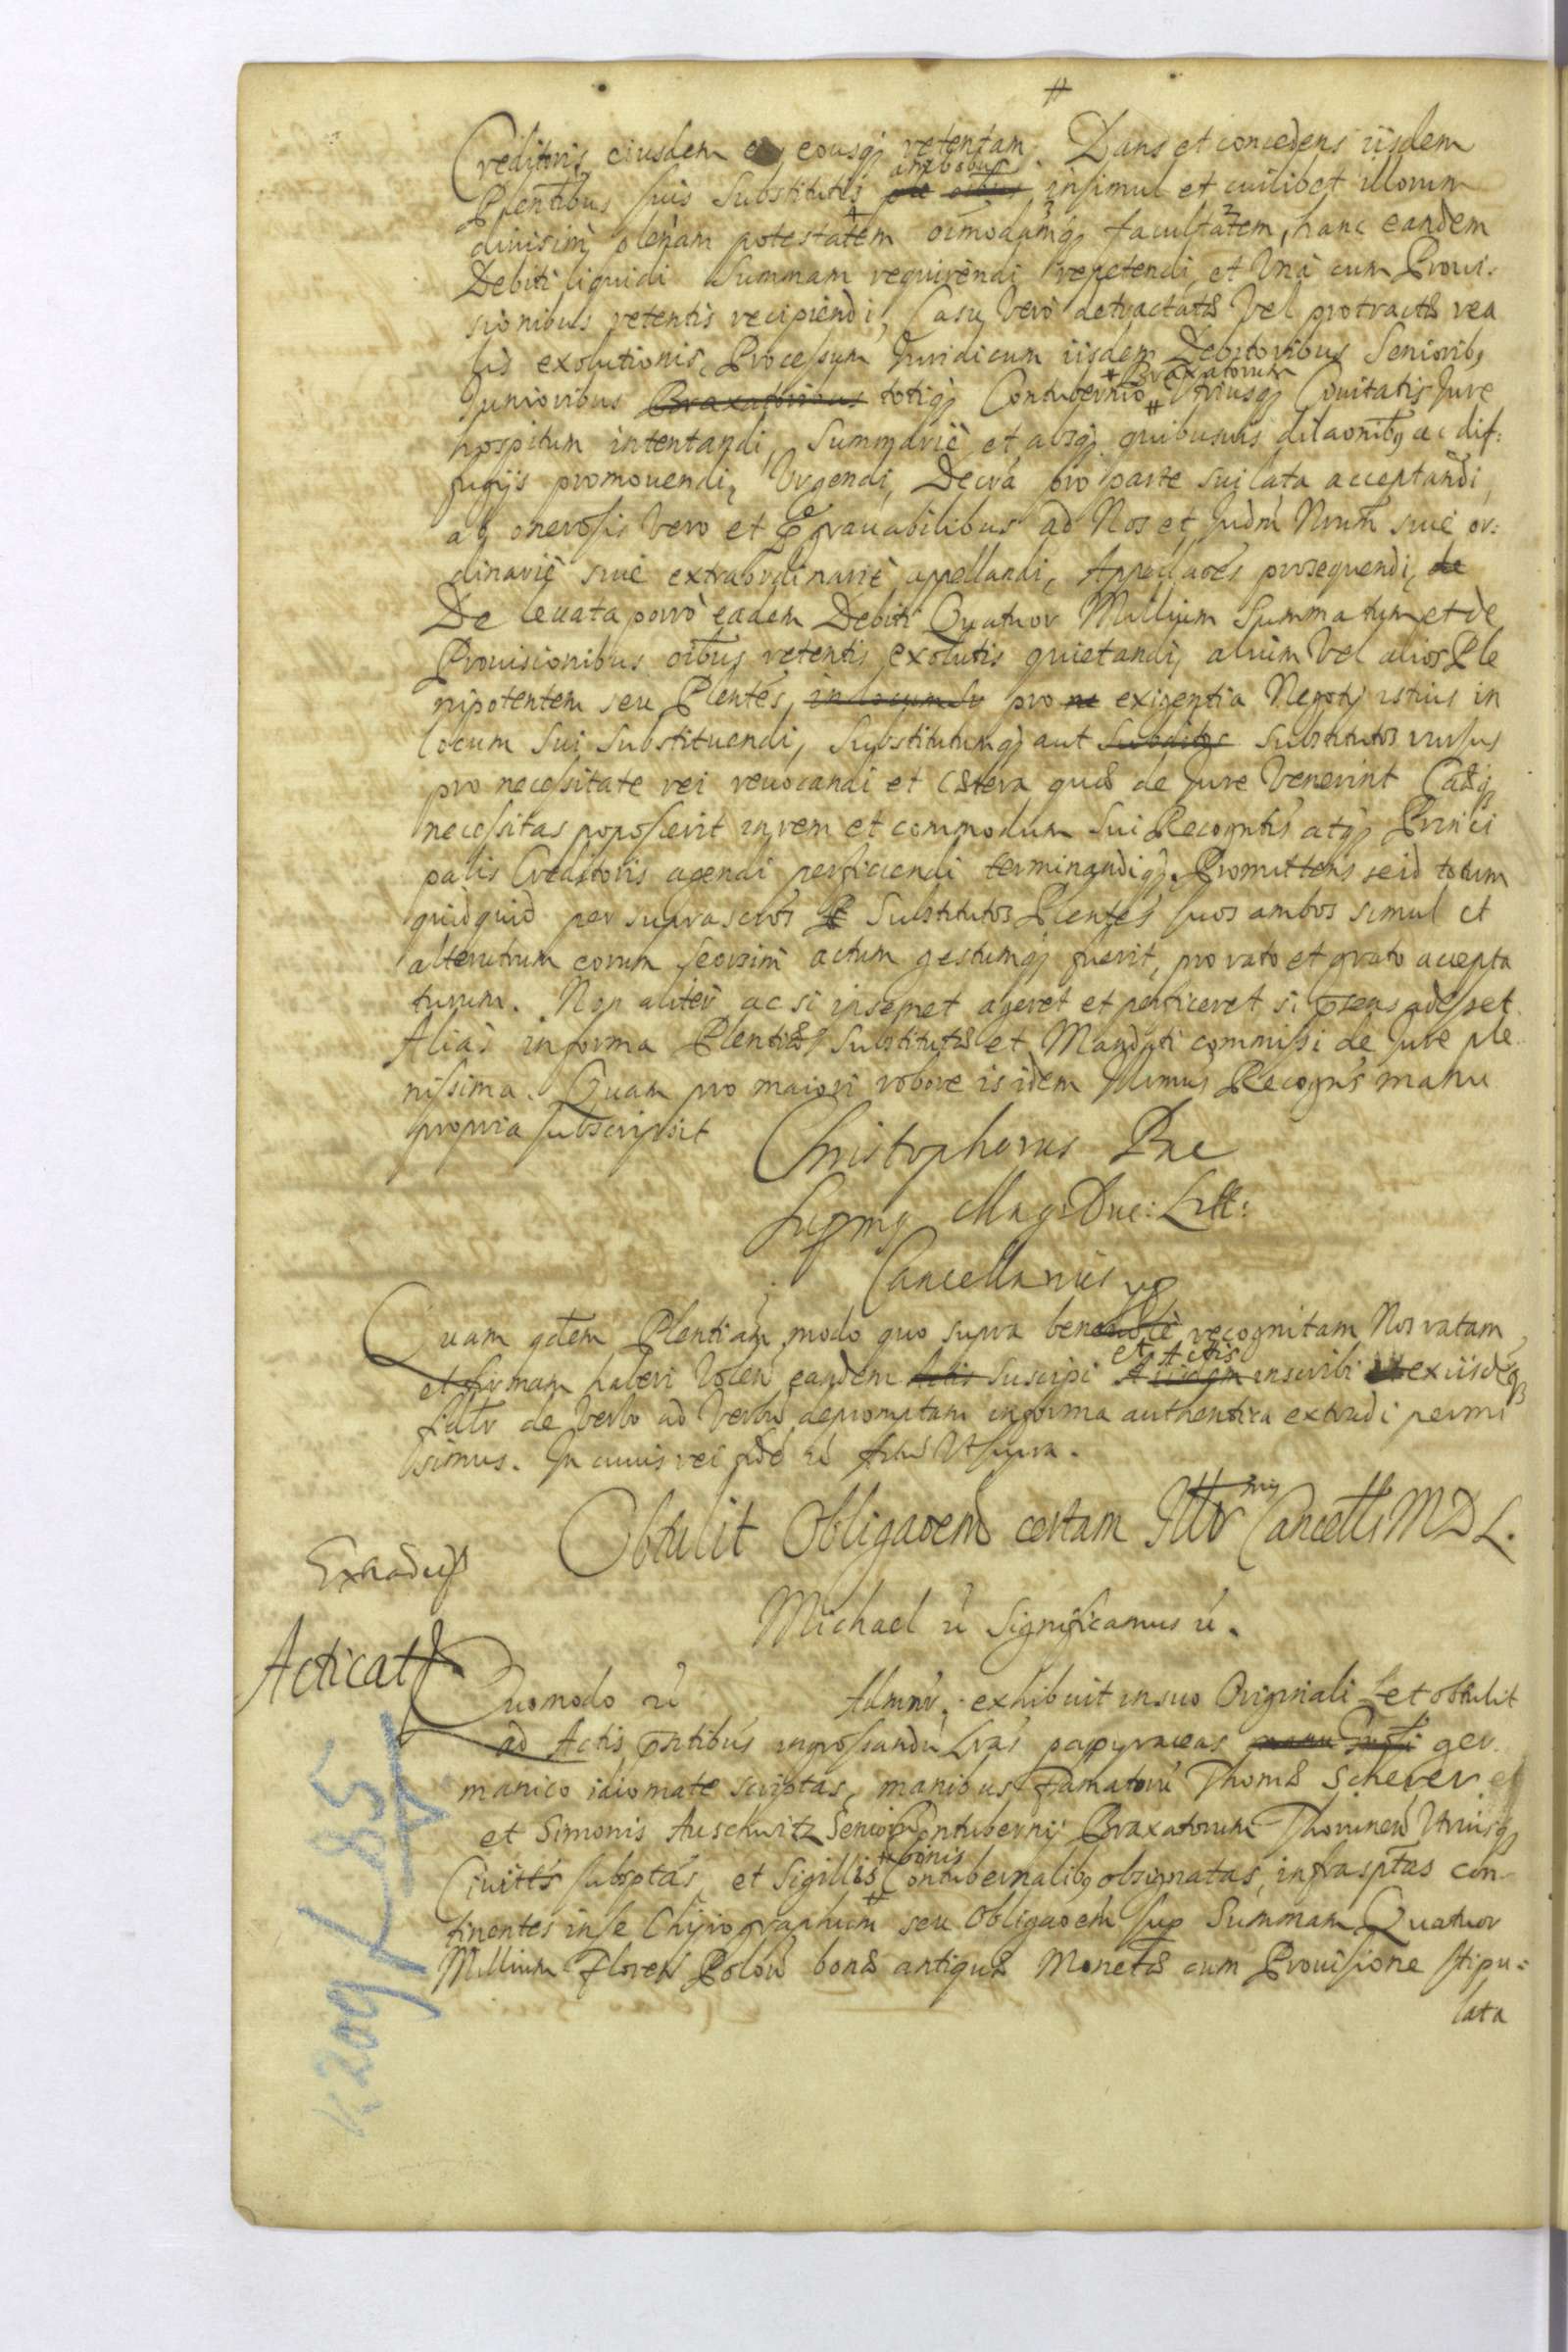 #
Creditoris eiusdem eousq retentam. Dans et concedens iisdem
Plentibus suis Substitutis ambobus insimul et cuilibet illorum
divisim, plenam potestatem oimodamq facultatem, hanc eandem
Debiti liquidi Summam requirendi repetendi, et Unà cum Proui-
sionibus retentis recipiendi, Casu Verò detractatæ Vel protractæ rea
lis exolutionis, Processum Iuridicum iisdem Debitoribus Seniorib,
Iunioribus Braxatoribus totiq Contubernio # Braxatorum Vtriusq Ciuitatis Iure
hospitum intentandi, Summariè et absq quibusuis dilaonibq ac dif:
fugijs promouendi, Vrgendi, Decrà pro parte sui lata acceptandi,
ab onerosis Vero et Ggrauabilibus ad Nos et Iudm Nrum siuè or:
dinariè siuè extraordinariè appellandi, Appellaoes prosequendi, de
De leuata porrò eadem Debiti Quatuor Millium Summa tum et de
Prouisionibus oibus retentis exolutis quietandi, alium Vel alios Ple
nipotentem seu Plentes, in locum su pro ne exigentia Negotij istius in
locum Sui Substituendi, Substitutumq aut Subditos Substitutos rursus
pro necessitate rei reuocandi et cætera quæ de Iure Venerint Casq
necessitas poposcerit in rem et commodum Sui Recogntis atq Princi
palis Creditoris agendi perficiendi terminandiq. Promittens se id totum
quidquid per suprascros Substitutos Plentes suos ambos simul et
alterutrum eorum Seorsim actum gestumq fuerit, pro rato et grato accepta
turum. Non aliter ac si insemet ageret et perficeret si psens adesset.
Aliàs in forma Plentiæ Substitutæ et Mandati commissi de Iure ple
nissima. Quam pro maiori robore is idem Illmus Recogns manu
propria subscripsit Christophorus Pac
Supmq Mag: Duc: Litt:
Cancellarius
Quam qdem Plentiam modo quo supra bene recognitam Nos ratam
et firmam haberi Volen eandem Actis Suscipi et Actis inscribi exiisdq
fidlr de Verbo ad Verbu depromptam in forma authentica extradi permi
simus. In cuius rei fidè rè Vt supra.
Obtulit Obligaoem certam Illr mij Cancelli M D L.
Extradus
Michael rè Significamus rè.
Acticat
Quomodo rè Admnr. exhibuit in suo Originali et obtulit
ad Actis pntibus ingrossandu Lras papyraceas manu ger-
manico idiomate scriptas, manibus Famatoru Thomæ Scherer et
et Simonis Auschwitz Senioru Contubernij Braxatorum Thorunen Vtriusq
Ciuitts subsptas, et Sigillis # binis Contubernalibq obsignatas, infrasptas con-
tinentes in se Chijrographum seu Obligaoem sup Summam Quatuor
Millium Floren Polon bonæ antiquæ Monetæ cum Prouisione stipu=
lata
K 209/L 85